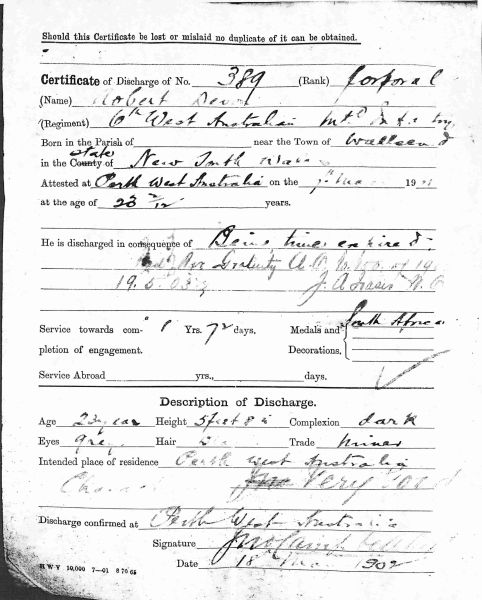 Should this Certificate be lost or mislaid no duplicate of it can be obtained.
Certificate of Discharge of No. 389 (Rank) Corporal
(Name) Robert
(Regiment) 6th West Australian Mtd Inftry
Born in the Parish of near the Town of Wallsend
in the County of State New South Wales
Attested at Perth West Australia on the 19
at the age of 23 /12 years.
He is discharged in consequence of Being time expired
Gratuity A.O. of 19
19.5.03
Service towards com- 1 Yrs. 72 days. Medals and South Africa
pletion of engagement. Decorations,
Service Abroad yrs., days.
Description of Discharge.
Age 23 year Height 5 feet 8 in Complexion dark
Eyes grey Hair Trade Miner
Intended place of residence Perth West Australia
Very Good
Discharge confirmed at Perth West Australia
Signature
Date 18 1902
H W V 10,000 7—01 8 70 65